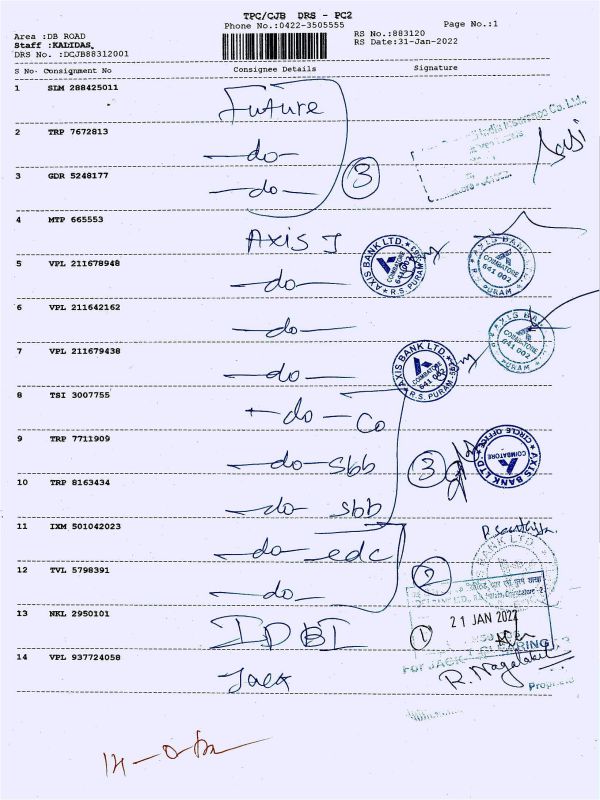 TPC/CJB DRS - PC2
Phone No.:0422-3505555
Page No.:1
Area :DB ROAD
RS No.:883120
Staff :KALIDAS,
RS Date:31-Jan-2022
DRS No. :DCJB88312001
S No. Consignment No Consignee Details Signature
1 SLM 288425011 Future
2 TRP 7672813 -do-
3 GDR 5248177 -do- 3
4 MTP 665553 Axis I
AXIS BANK LTD. COIMBATORE 641 002 R.S. PURAM
AXIS BANK COIMBATORE 641 002 R.S. PURAM
5 VPL 211678948 -do-
6 VPL 211642162 -do-
AXIS BANK COIMBATORE 641 002 PURAM
7 VPL 211679438 -do-
AXIS BANK LTD. COIMBATORE 641 002 R.S. PURAM
8 TSI 3007755 -do- Co
9 TRP 7711909 -do- sbb 3
AXIS BANK LTD CIRCLE OFFICE COIMBATORE
10 TRP 8163434 -do- sbb
11 IXM 501042023 -do- edc
12 TVL 5798391 -do- 2
13 NKL 2950101 IDBI 1
21 JAN 2022
14 VPL 937724058 Jack